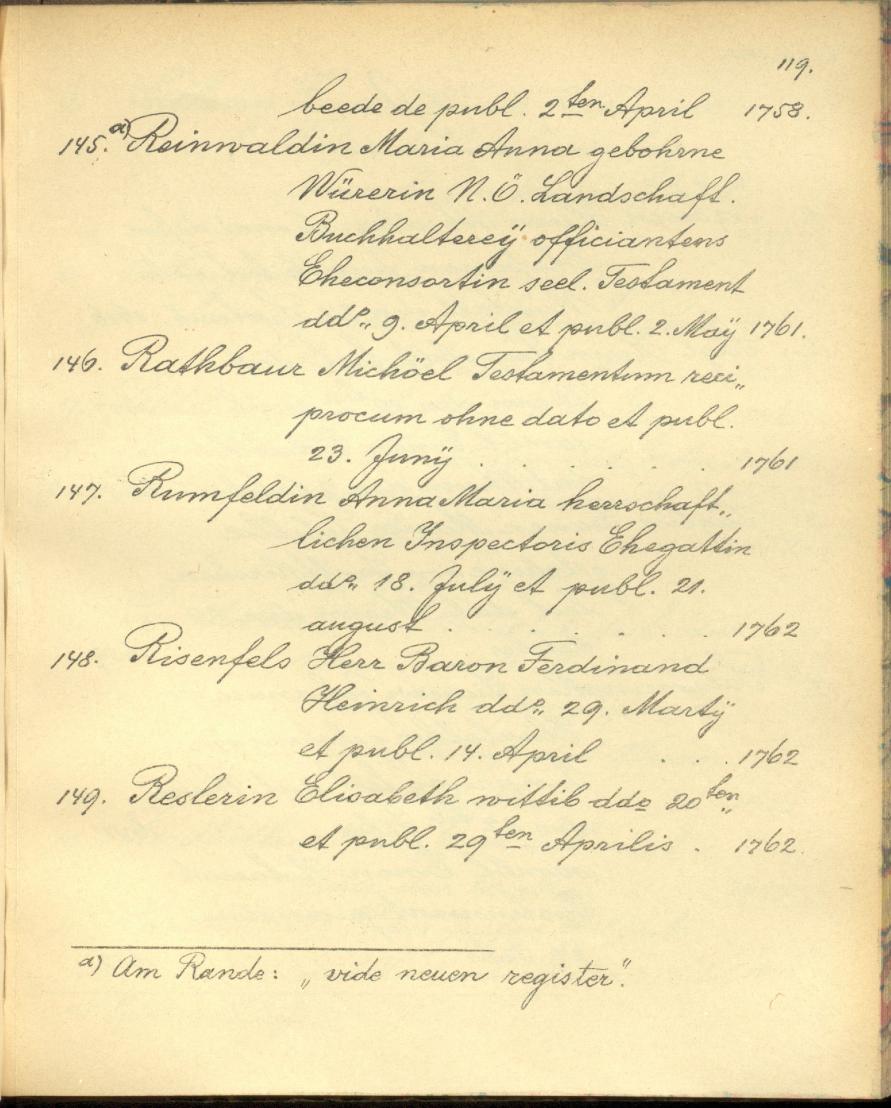 119.
beede de publ. 2ten April 1758.
145. a) Reinwaldin Maria Anna gebohrne
Würerin N.Ö. Landschaft.
Buchhaltereÿ officiantens
Eheconsortin seel. Testament
ddo„ 9. April et publ. 2. Maÿ 1761.
146. Rathbaur Michöel Testamentum reci„
procum ohne dato et publ.
23. Junÿ . . . . . . 1761
147. Rumfeldin Anna Maria herrschaft„
lichen Inspectoris Ehegattin
ddo„ 18. Julÿ et publ. 21.
august . . . . . . 1762
148. Risenfels Herr Baron Ferdinand
Heinrich ddo„ 29. Martÿ
et publ. 14. April . . . 1762
149. Reslerin Elisabeth wittib ddo 20ten„
et publ. 29ten Aprilis . 1762.
a) Am Rande: „vide neuen register".